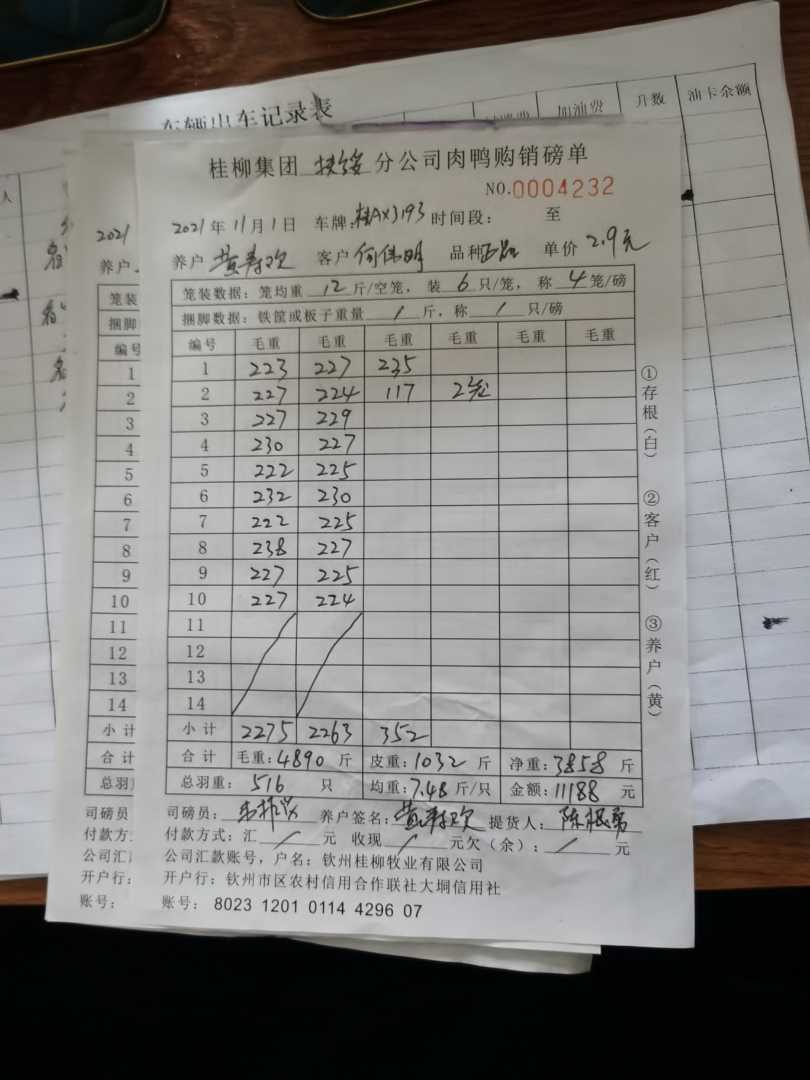 车辆出车记录表
加油费 升数 油卡余额
桂柳集团 扶绥 分公司肉鸭购销磅单
NO.0004232
2021年11月1日 车牌:桂AXJ193 时间段: 至
养户 黄寿欢 客户 何伟明 品种 正品 单价 2.9元
笼装数据:笼均重 12 斤/空笼,装 6 只/笼,称 4 笼/磅
捆脚数据:铁筐或板子重量 / 斤,称 / 只/磅
编号 毛重 毛重 毛重 毛重 毛重 毛重
1 223 227 235
2 227 224 117 2笼
3 227 229
4 230 227
5 222 225
6 232 230
7 222 225
8 238 227
9 227 225
10 227 224
11
12
13
14
小计 2275 2263 352
合计 毛重:4890 斤 皮重:1032 斤 净重:3858 斤
总羽重: 516 只 均重:7.48 斤/只 金额:11188 元
司磅员: 养户签名:黄寿欢 提货人:陈根勇
付款方式:汇 / 元 收现 / 元欠(余): / 元
公司汇款账号,户名:钦州桂柳牧业有限公司
开户行:钦州市区农村信用合作联社大垌信用社
账号: 8023 1201 0114 4296 07
①存根(白) ②客户(红) ③养户(黄)
2021
养户
笼装
捆脚
编号
1
2
3
4
5
6
7
8
9
10
11
12
13
14
小计
合计
总羽
司磅员
付款方
公司汇
开户行:
账号: